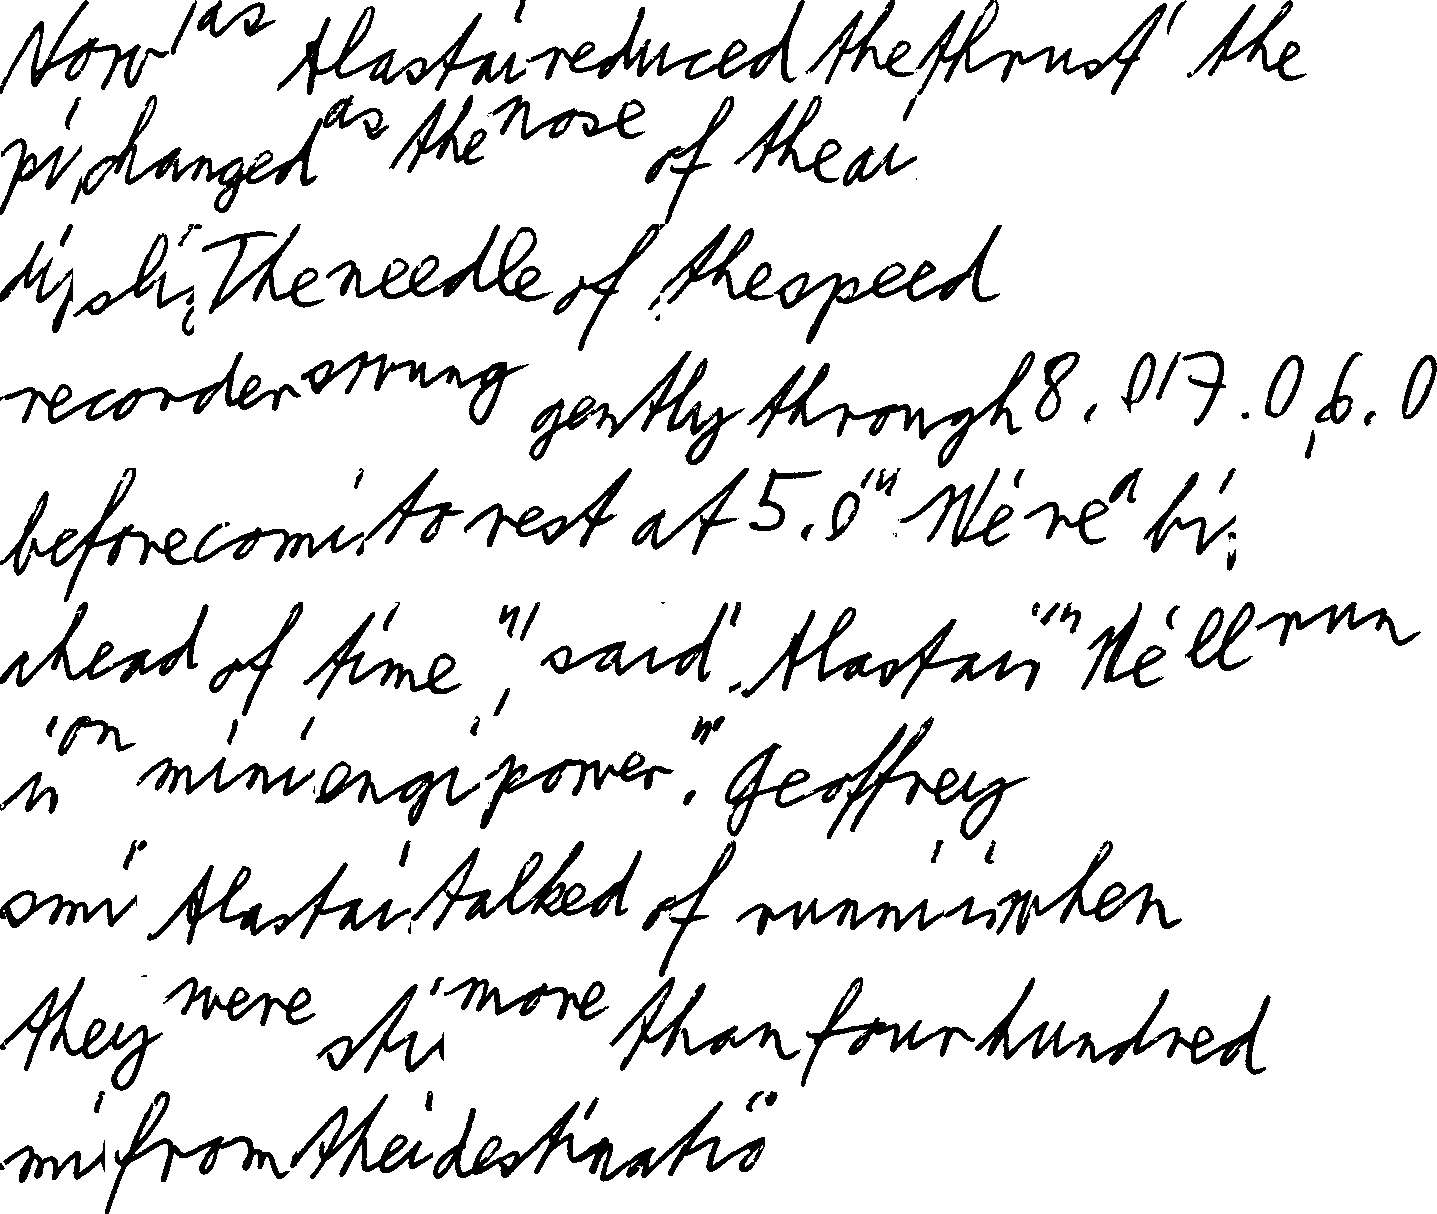 Now, as Alastai reduced the thrust, the
pi changed as the nose of the ai
dip sli. The needle of the speed
recorder swung gently through 8.0, 7.0, 6.0
before comi to rest at 5.0. "We're a bi
ahead of time," said Alastair. "We'll run
in on mini engi power." Geoffrey
smi Alastai talked of runni in when
they were sti more than four hundred
mi from thei destinatio